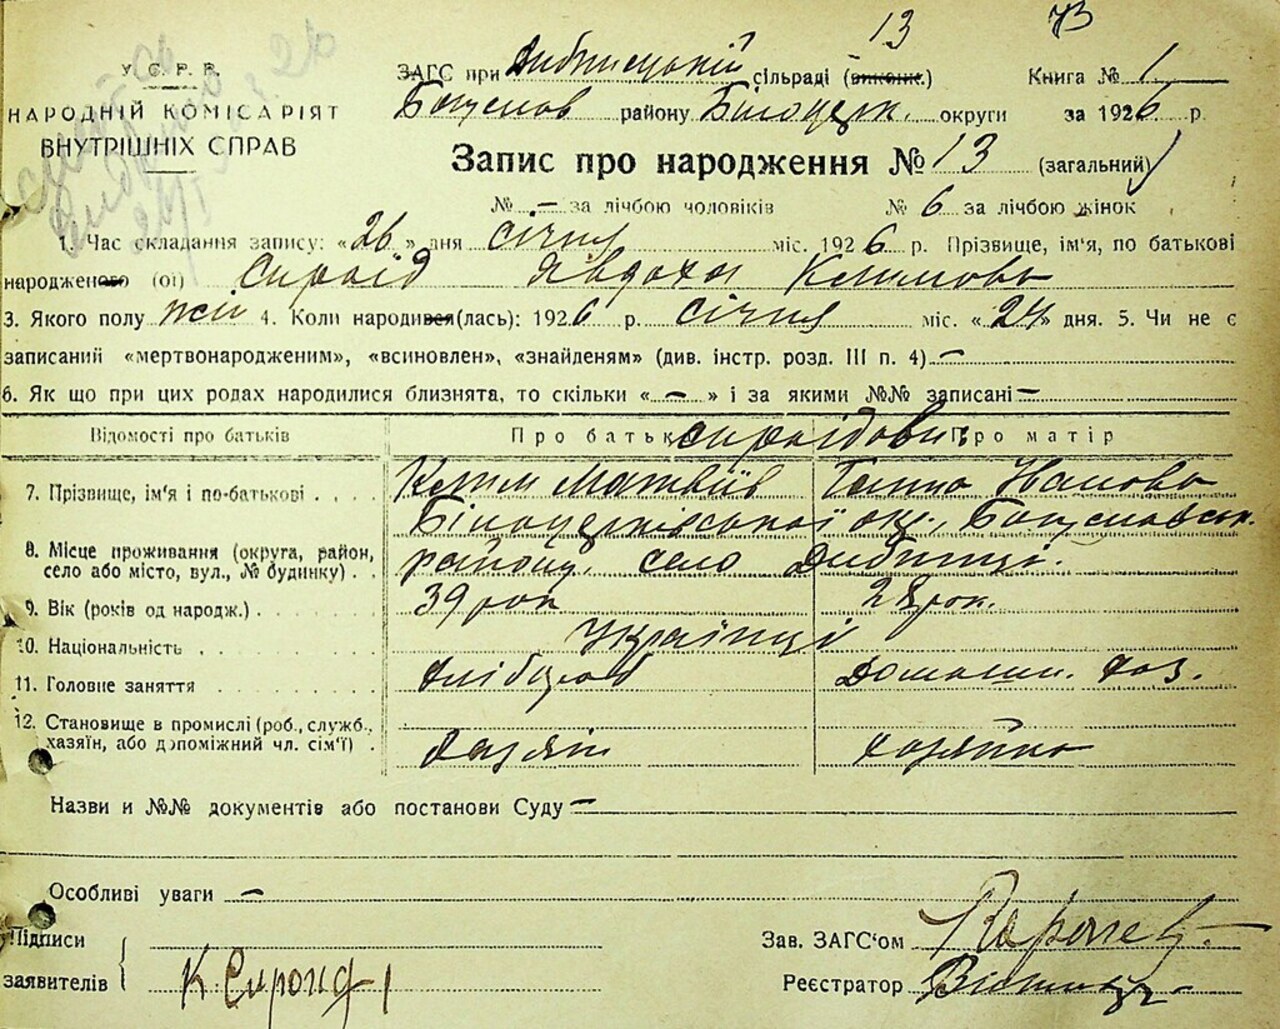 13
У.С.Р.Р.
НАРОДНІЙ КОМІСАРІЯТ
ВНУТРІШНІХ СПРАВ
ЗАГС при Дибинецькій сільраді (виконк.) Книга № 1
Богуслав району Білоцерк. округи за 1926 р.
Запис про народження № 13 (загальний)
№ — за лічбою чоловіків № 6 за лічбою жінок
1. Час складання запису: «26» дня січня міс. 1926 р. Прізвище, ім'я, по батькові
народженого (ої) Сироїд Явдоха Климовь
3. Якого полу жін 4. Коли народився(лась): 1926 р. січня міс. «24» дня. 5. Чи не є
записаний «мертвонародженим», «всиновлен», «знайденям» (див. інстр. розд. III п. 4) —
6. Як що при цих родах народилися близнята, то скільки « — » і за якими №№ записані —
Відомості про батьків Про батька Про матір
Сироїдови
7. Прізвище, ім'я і по-батькові Клим Матвіїв Ганна Іванова
Білоцерківської окр., Богуславськ.
8. Місце проживання (округа, район, село або місто, вул., № будинку) району, село Дибинці.
9. Вік (років од народж.) 39 рок 28 рок.
10. Національність Українці
11. Головне заняття хлібороб домашн. хоз.
12. Становище в промислі (роб., служб., хазяїн, або допоміжний чл. сім'ї) хазяїн хозяйка
Назви и №№ документів або постанови Суду —
Особливі уваги —
Підписи
заявителів К. Сироїд
Зав. ЗАГС'ом
Реєстратор